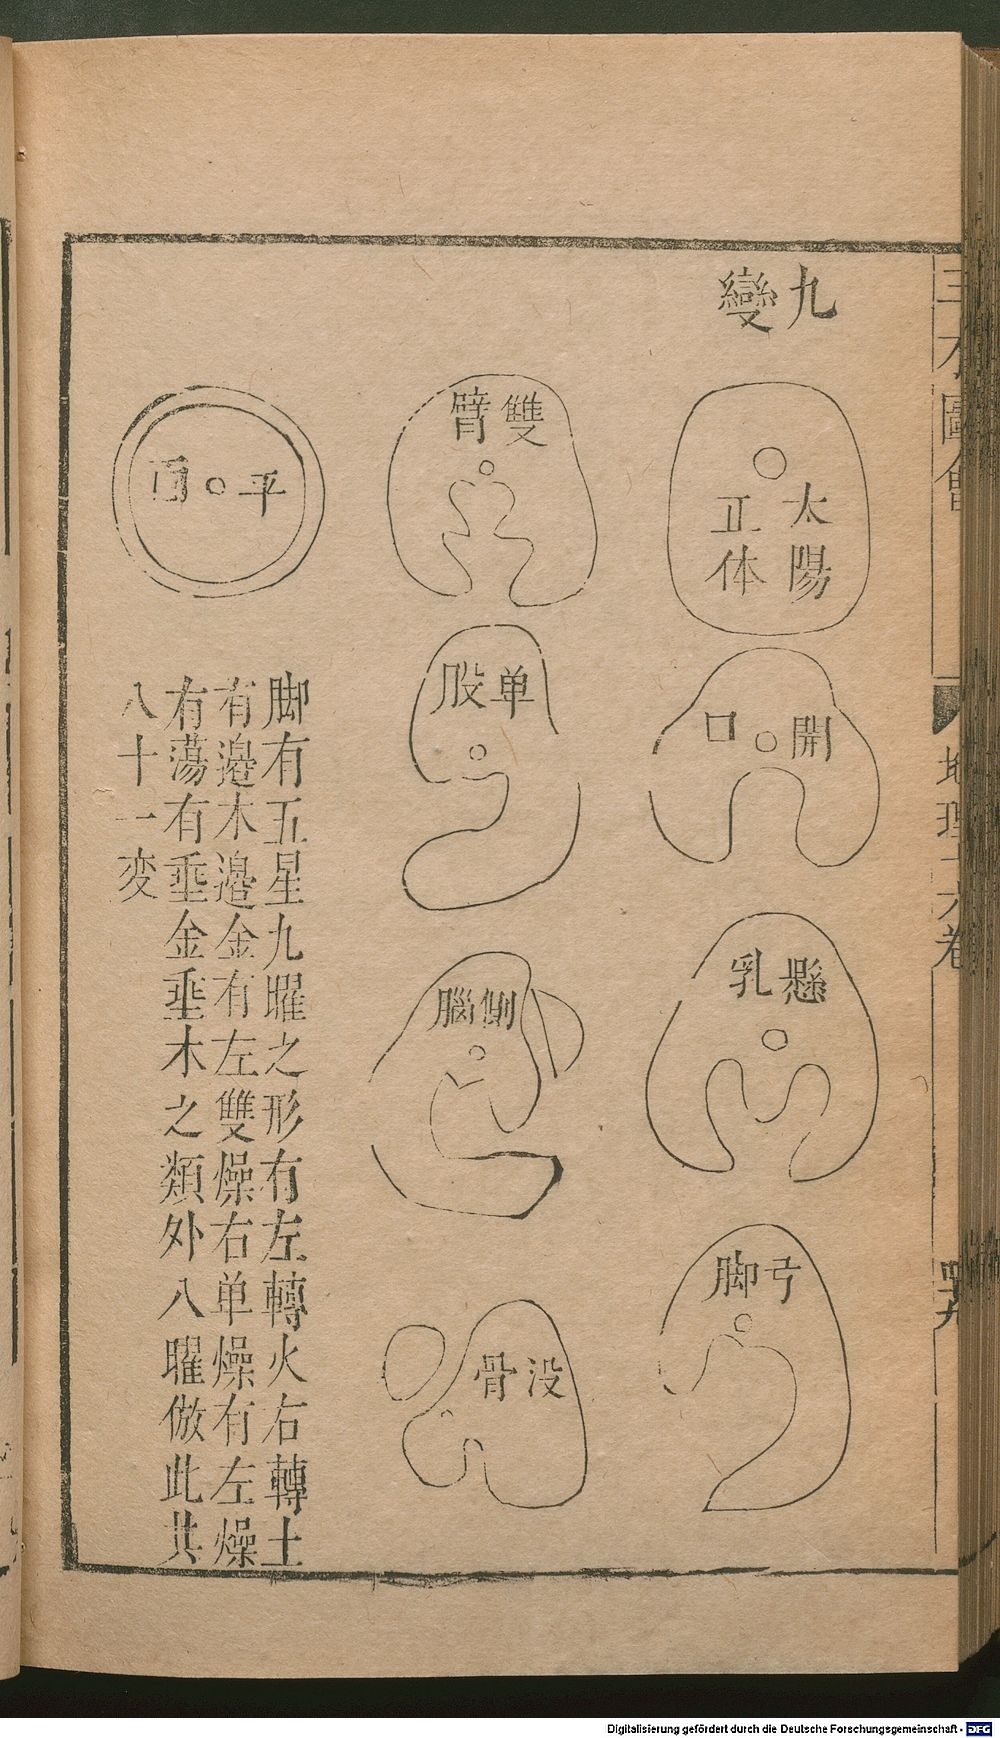 三才圖會
地理十六卷
九變
太陽
正体
開口
懸乳
弓脚
雙臂
单股
側腦
没骨
平面
脚有五星九曜之形有左轉火右轉土
有邉木邉金有左雙燥右单燥有左燥
右蕩有垂金垂木之類外八曜倣此共
八十一变
Digitalisierung gefördert durch die Deutsche Forschungsgemeinschaft - DFG